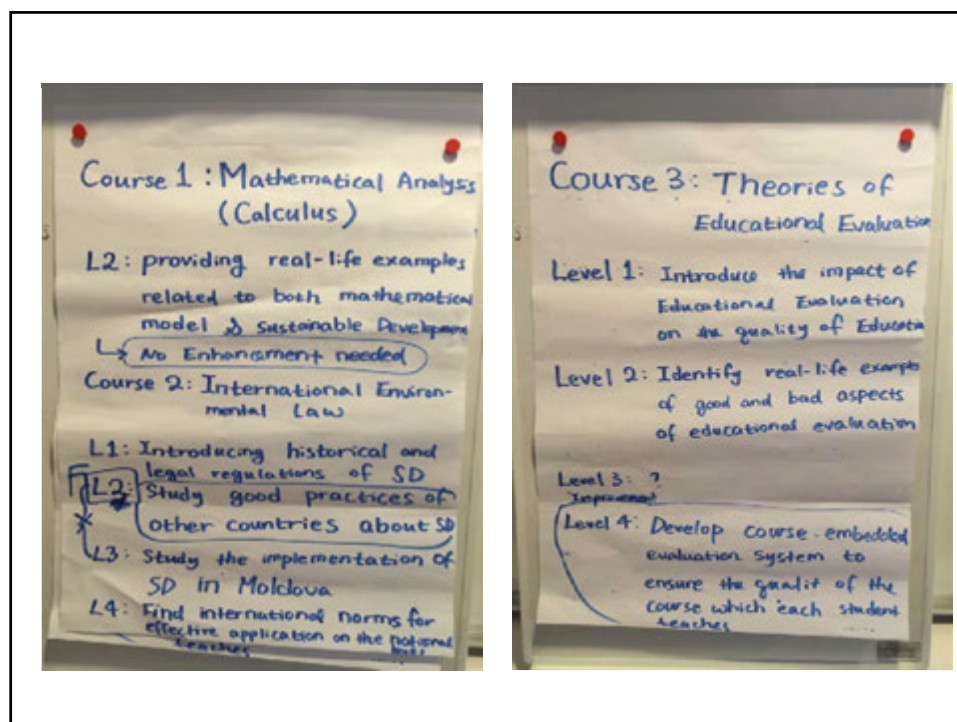 Course 1 : Mathematical Analysis
(Calculus)
L2: providing real-life examples
related to both mathematical
model & Sustainable Development
No Enhancment needed
Course 2: International Environ-
mental Law
L1: Introducing historical and
legal regulations of SD
L2: Study good practices of
other countries about SD
L3: Study the implementation of
SD in Moldova
L4: Find international norms for
effective application on the national
teaches
Course 3: Theories of
Educational Evaluation
Level 1: Introduce the impact of
Educational Evaluation
on the quality of Educatio
Level 2: Identify real-life exampl
of good and bad aspects
of educational evaluation
Level 3: ?
Improved
Level 4: Develop course-embedded
evaluation system to
ensure the qualit of the
course which each student
teaches